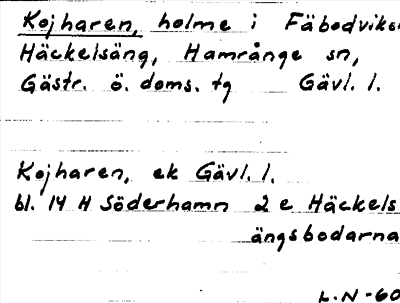 Kojharen, holme i Fäbodviks
Häckelsäng, Hamrånge sn,
Gästr. ö. doms. tg Gävl. l.
Kojharen, ek Gävl. l.
bl. 14 H Söderhamn 2 e Häckels
ängsbodarna
L.N -60